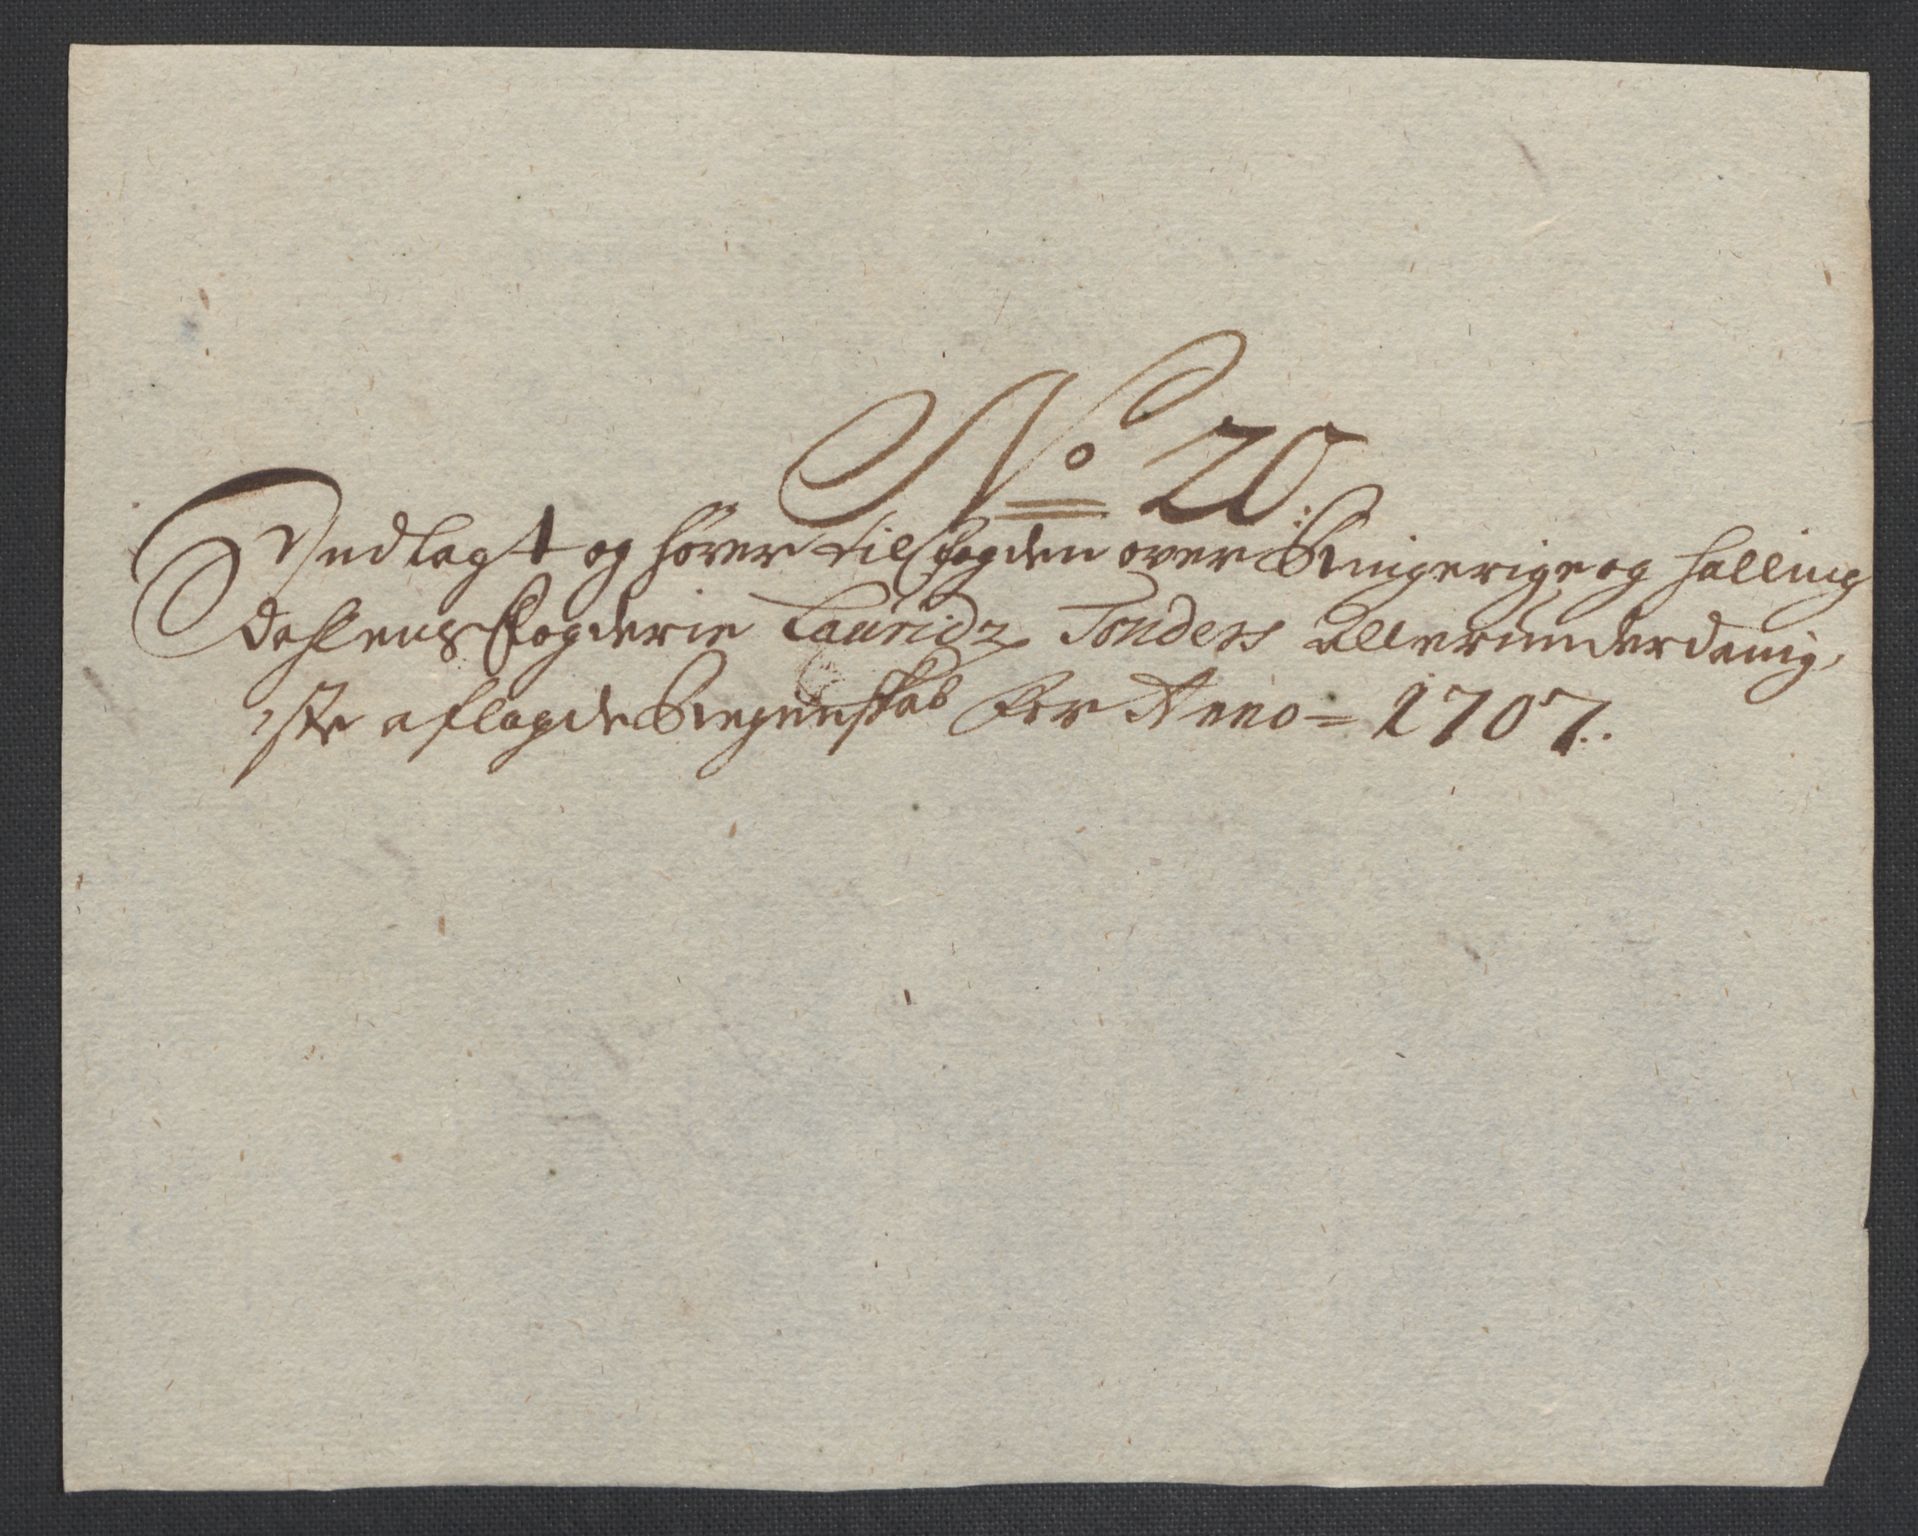 No 20:
Indlagt og hører til fogden over Ringerige og Halling
Dahlens fogderie Lauridz Tonders Allerunderdanig,
iste aflagde Regenskab for Anno = 1707..